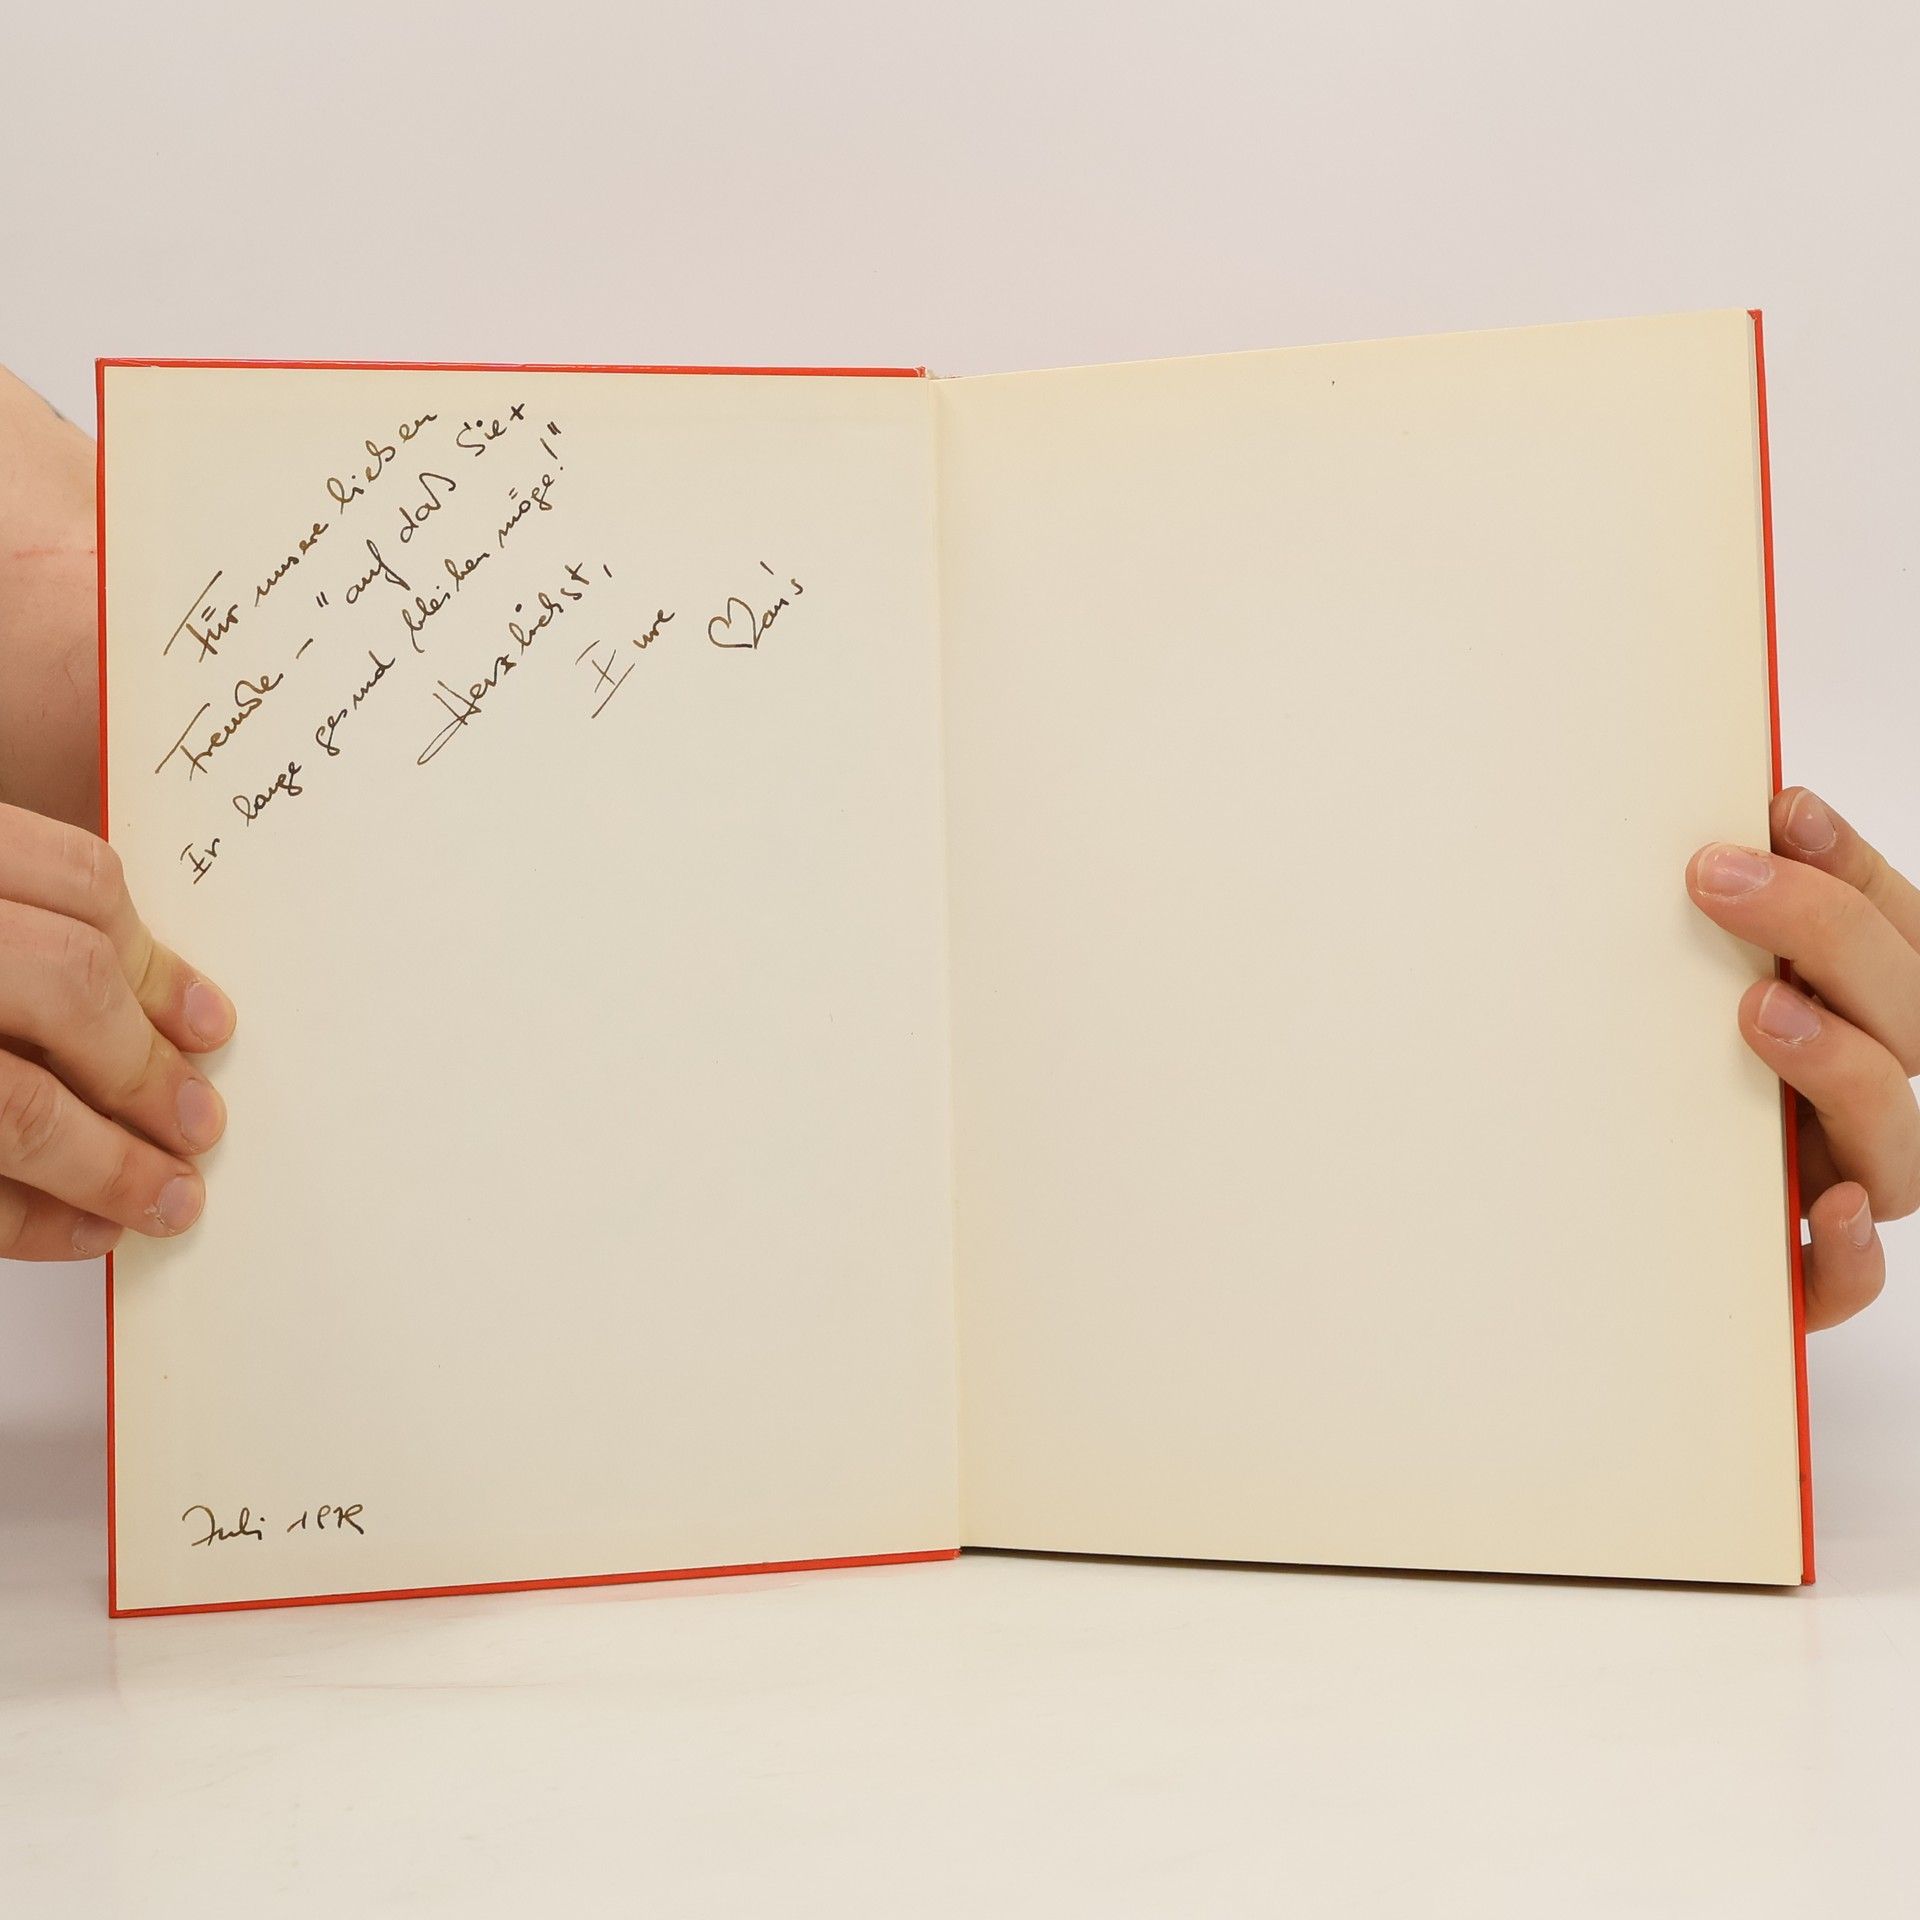 Für unsere lieben
Freunde – "auf daß Sie +
Er lange gesund bleiben möge!"
Herzlichst,
Eure
Juli 1979